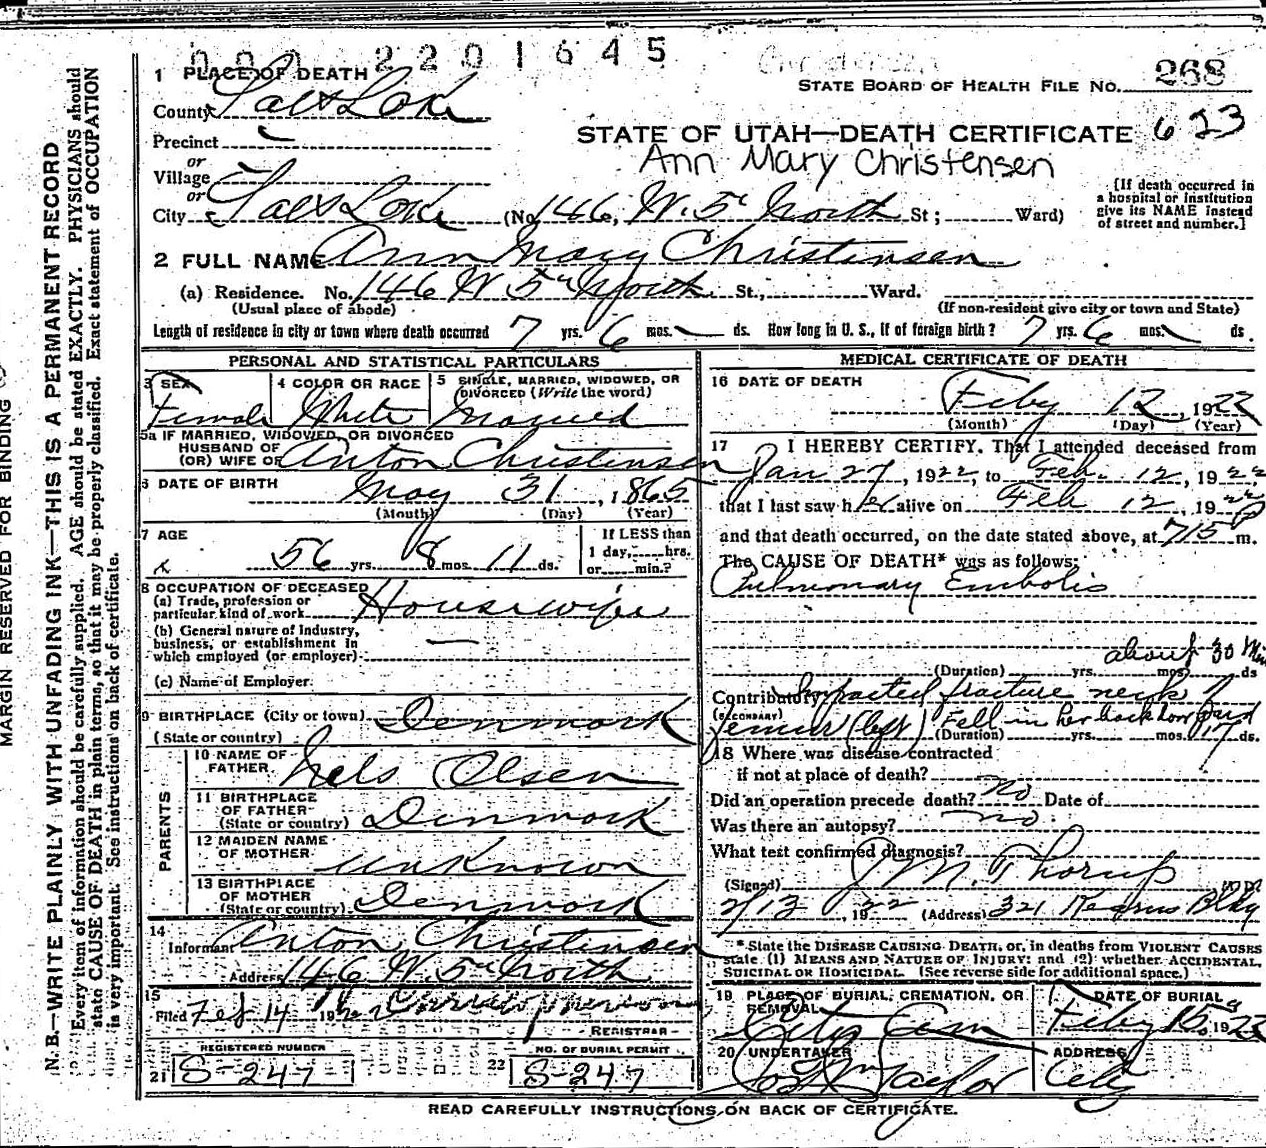 000 2201645
Christensen
1 PLACE OF DEATH
STATE BOARD OF HEALTH FILE NO. 268
County Salt Lake
Precinct —
STATE OF UTAH—DEATH CERTIFICATE 623
or
Ann Mary Christensen
Village —
or
City Salt Lake (No. 146, W. 5th North St; Ward)
[If death occurred in a hospital or institution give its NAME instead of street and number.]
2 FULL NAME Ann Mary Christensen
(a) Residence. No. 146 W 5th North St., Ward.
(Usual place of abode) (If non-resident give city or town and State)
Length of residence in city or town where death occurred 7 yrs. 6 mos. — ds. How long in U. S., if of foreign birth? 7 yrs. 6 mos. ds.
PERSONAL AND STATISTICAL PARTICULARS
3 SEX Female
4 COLOR OR RACE White
5 SINGLE, MARRIED, WIDOWED, OR DIVORCED (Write the word) Married
5a IF MARRIED, WIDOWED, OR DIVORCED
HUSBAND OF
(OR) WIFE OF Anton Christensen
6 DATE OF BIRTH May 31, 1865
(Month) (Day) (Year)
7 AGE 56 yrs. 8 mos. 11 ds.
If LESS than
1 day, hrs.
or min.?
8 OCCUPATION OF DECEASED
(a) Trade, profession or
particular kind of work Housewife
(b) General nature of industry,
business, or establishment in
which employed (or employer) —
(c) Name of Employer.
9 BIRTHPLACE (City or town) Denmark
(State or country)
PARENTS
10 NAME OF FATHER Nels Olsen
11 BIRTHPLACE OF FATHER (State or country) Denmark
12 MAIDEN NAME OF MOTHER Unknown
13 BIRTHPLACE OF MOTHER (State or country) Denmark
14 Informant Anton Christensen
Address 146 W. 5th North
15 Filed Feb 14 1922
REGISTRAR
REGISTERED NUMBER
21 S-247
NO. OF BURIAL PERMIT
22 S-247
MEDICAL CERTIFICATE OF DEATH
16 DATE OF DEATH
Feby 12, 1922
(Month) (Day) (Year)
17 I HEREBY CERTIFY, That I attended deceased from
Jan 27, 1922, to Feb. 12, 1922,
that I last saw her alive on Feb 12, 1922
and that death occurred, on the date stated above, at 715 P m.
The CAUSE OF DEATH* was as follows:
Pulmonary Embolis
about 30 Min
(Duration) yrs. mos. ds
Contributory Impacted fracture neck of
(SECONDARY) femur (left) Fell in her back yard
(Duration) yrs. mos. 17 ds.
18 Where was disease contracted
if not at place of death?
Did an operation precede death? no Date of
Was there an autopsy? no.
What test confirmed diagnosis?
(Signed) J. M. Thorup M. D.
2/13, 1922 (Address) 321 Kearns Bldg
*State the DISEASE CAUSING DEATH, or, in deaths from VIOLENT CAUSES
state (1) MEANS AND NATURE OF INJURY; and (2) whether ACCIDENTAL,
SUICIDAL OR HOMICIDAL. (See reverse side for additional space.)
19 PLACE OF BURIAL, CREMATION, OR REMOVAL City Cem
DATE OF BURIAL Feby 15, 1922
20 UNDERTAKER Jos Wm Taylor
ADDRESS City
READ CAREFULLY INSTRUCTIONS ON BACK OF CERTIFICATE.
MARGIN RESERVED FOR BINDING
N. B.—WRITE PLAINLY WITH UNFADING INK—THIS IS A PERMANENT RECORD
Every item of information should be carefully supplied. AGE should be stated EXACTLY. PHYSICIANS should
state CAUSE OF DEATH in plain terms, so that it may be properly classified. Exact statement of OCCUPATION
is very important. See instructions on back of certificate.